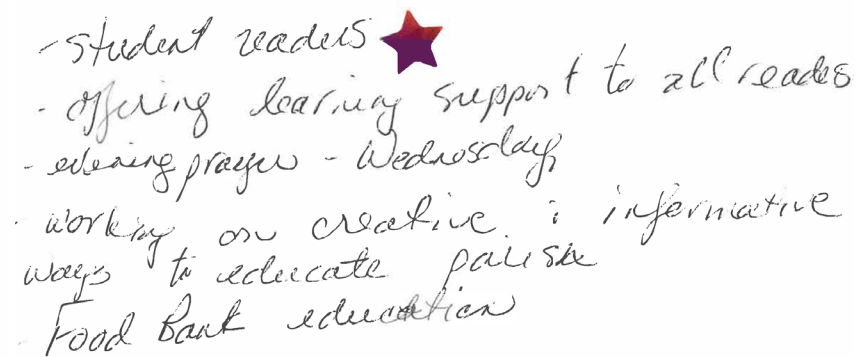 - student readers
- offering learning support to all readers
- evening prayer - Wednesday
- working on creative & informative
ways to educate parish
- Food Bank education